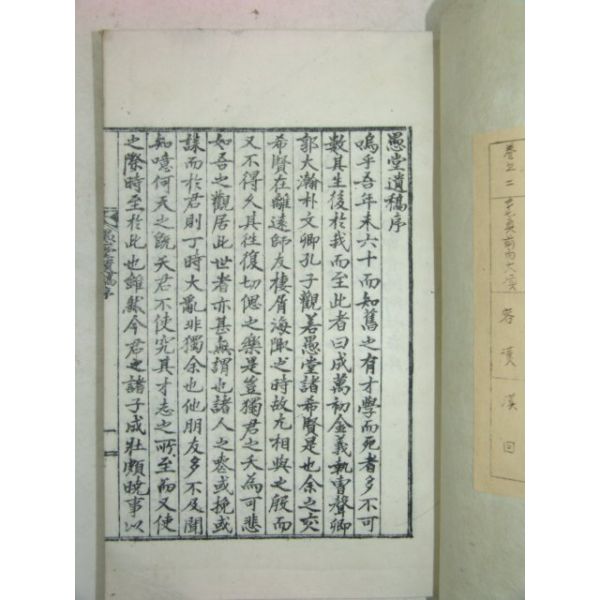 愚堂遺稿序
嗚乎吾年未六十而知舊之有才學而死者多不可
數其生後於我而至此者曰成萬初金義執曺聲卿
郭大瀚朴文卿孔子觀若愚堂諸希賢是也余之交
希賢在離遠師友棲屑海陬之時故尤相與之殷而
又不得久其往復切偲之樂是豈獨君之夭爲可悲
如吾之觀居此世者亦甚無謂也諸人之喪或挽或
誄而於君則丁時大亂非獨余也他朋友多不及聞
知噫何天之旣夭君不使究其才志之所至而又使
之際時至於此也雖然今君之諸子成壯頗曉事以
愚堂遺稿序
一
卷之二
客
回